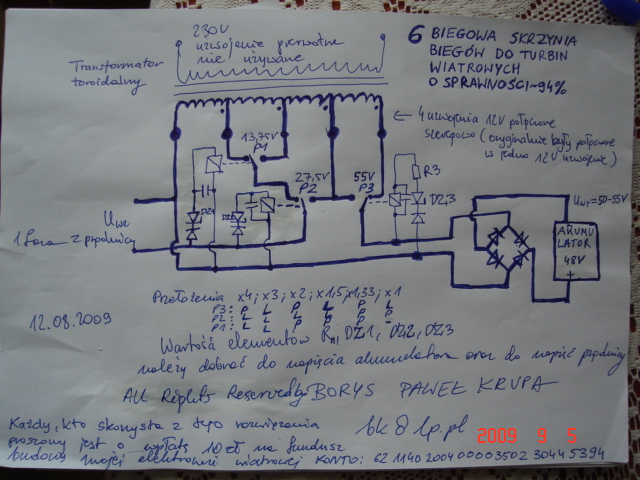 230V
uzwojenie pierwotne
nie używane
Transformator
toroidalny
6 BIEGOWA SKRZYNIA
BIEGÓW DO TURBIN
WIATROWYCH
O SPRAWNOŚCI ~94%
4 uzwojenia 12V połączone
szeregowo (oryginalnie były połączone
w jedno 12V uzwojenie)
13,75V
P1
27,5V
P2
55V
P3
R3
DZ3
DZ1
DZ2
Uwe
1 faza z prądnicy
Uwy=50-55V
AKUMU
LATOR
48V
+
Przełożenia x4; x3; x2; x1,5; x1,33; x1
P3: P L P L P L
P2: L L P P
P1: L L
12.08.2009
Wartość elementów Rn, DZ1, DZ2, DZ3
należy dobrać do napięcia akumulatora oraz do napięć prądnicy
All Rights Reserved by BORYS PAWEŁ KRUPA
Każdy, kto skorzysta z tego rozwiązania
proszony jest o wpłatę 10zł na fundusz
budowy mojej elektrowni wiatrowej KONTO: 62 1140 2004 0000 3502 3044 5394
bk@lp.pl
2009 9 5